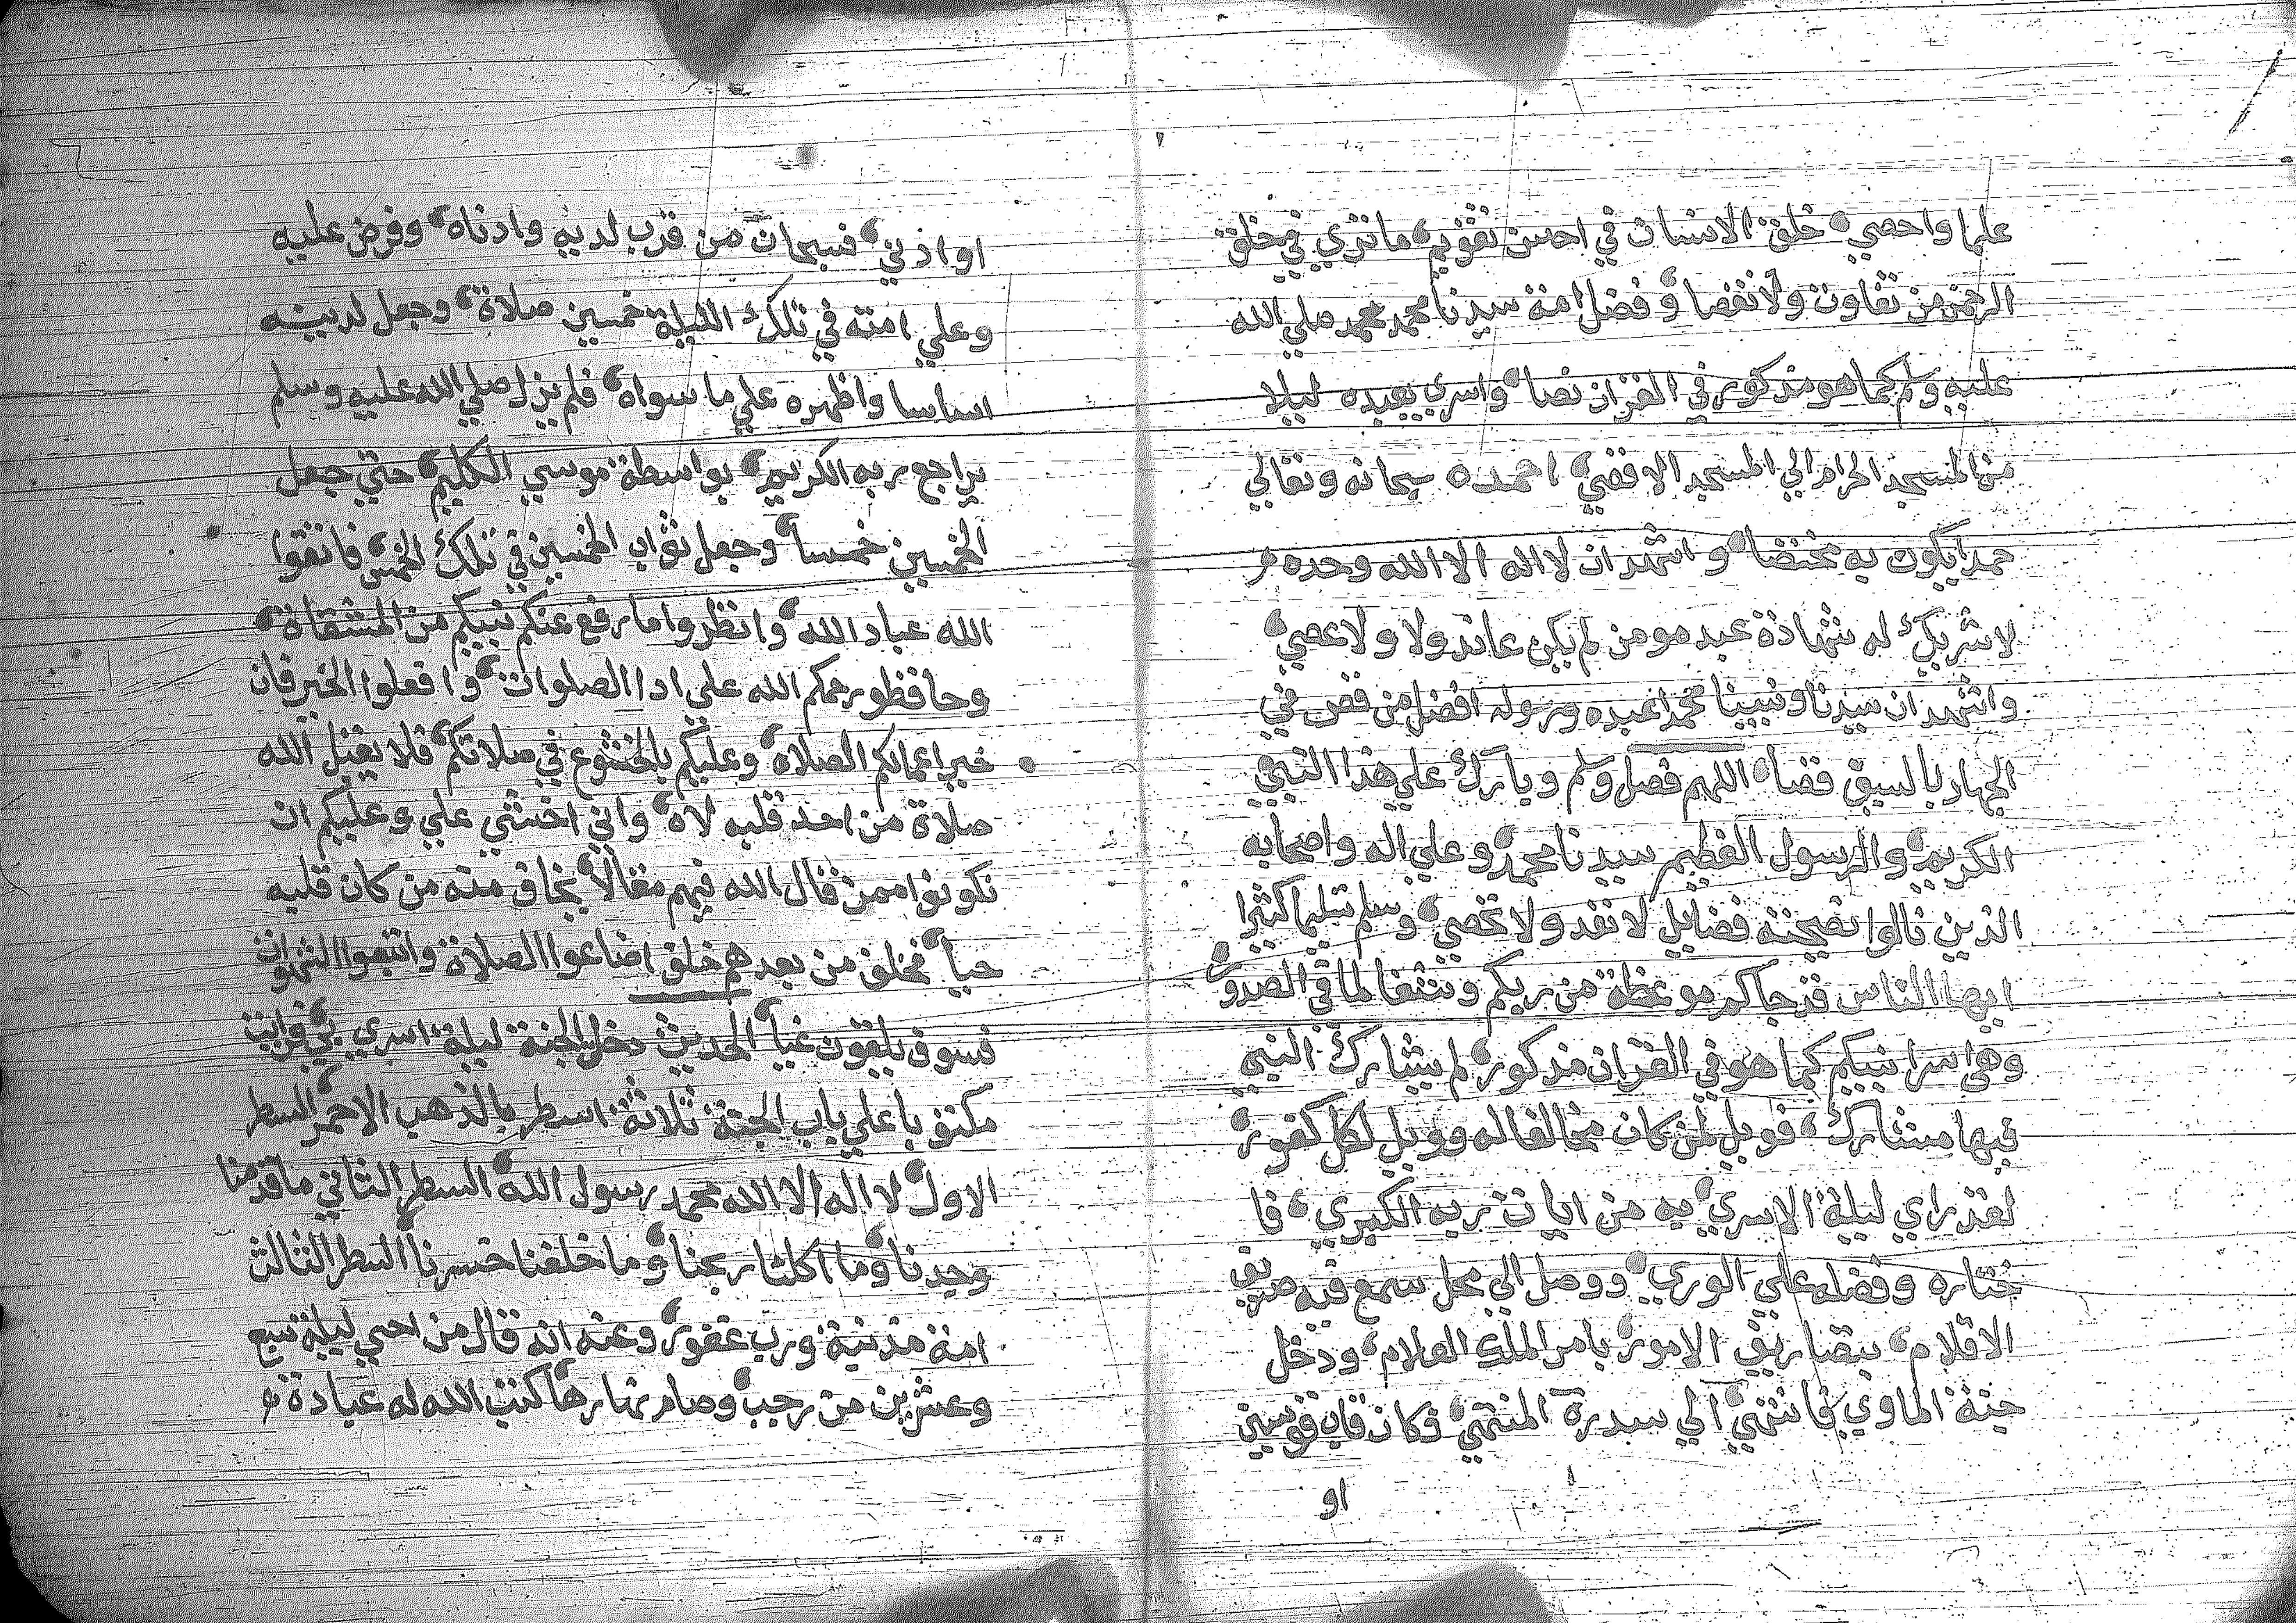 علما واحصي خلق الانسان في احسن تقويم ما تري في خلق
الرحمن من تفاوت ولا نقصا وفضل امة سيدنا محمد محمد صلي الله
عليه وسلم كما هو مذكور في القران نصا واسري بعبده ليلا
من المسجد الحرام الي المسجد الاقصي احمده سبحانه وتعالي
حمدا يكون به مختصا واشهد ان لا اله الا الله وحده
لا شريك له شهادة عبد مومن لم يكن عاند ولا ولا عصي
واشهد ان سيدنا ونبينا محمدا عبده ورسوله افضل من قص في
الجهاد بالسيق قصا اللهم فصل وسلم وبارك علي هذا النبي
الكريم والرسول العظيم سيدنا محمد وعلي اله واصحابه
الذين نالوا بصحبته فضايل لا تعد ولا تحصي وسلم تسليما كثيرا
ايها الناس قد جاكم موعظة من ربكم وشفا لما في الصدور
وهي اسرا نبيكم كما هو في القران مذكور لم يشارك النبي
فيها مشارك فويل لمن كان مخالفا له وويل لكل كفور
لقد راي ليلة الاسري به من ايات ربه الكبري فا
ختاره وفضله علي الوري ووصل الي محل سمع فيه صريف
الاقلام بتصاريف الامور بامر الملك العلام ودخل
جنة الماوي فانتهي الي سدرة المنتهي فكان قاب قوسين
او
او اذني فسبحان من قرب لديه وادناه وفرض عليه
وعلي امته في تلك الليلة خمسين صلاة وجعل لدينه
اساسا واظهره علي ما سواه فلم يزل صلي الله عليه وسلم
يراجع ربه الكريم بواسطة موسي الكليم حتي جعل
الخمسين خمسا وجعل ثواب الخمسين في تلك الخمس فاتقوا
الله عباد الله وانظروا ما رفع عنكم نبيكم من المشقاة
وحافظو رحمكم الله علي ادا الصلوات وافعلوا الخير فان
خير اعمالكم الصلاة وعليكم بالخشوع في صلاتكم فلا يقبل الله
صلاة من احد قلبه لاه واني اخشي علي وعليكم ان
تكونوا ممن قال الله فيهم مقالا يخاف منه من كان قلبه
حيا فخلف من بعدهم خلف اضاعوا الصلاة واتبعوا الشهوات
فسوف يلقون غيا الحديث دخل الجنة ليلة اسري بي فرايت
مكتوبا علي باب الجنة ثلاثة اسطر بالذهب الاحمر السطر
الاول لا اله الا الله محمد رسول الله السطر الثاني ما قدمنا
وجدنا وما اكلنا ربحنا وما خلفنا خسرنا السطر الثالث
امة مذنبة ورب غفور وعنه انه قال من احيي ليلة سبع
وعشرين من رجب وصام نهارها كتب الله له عبادة